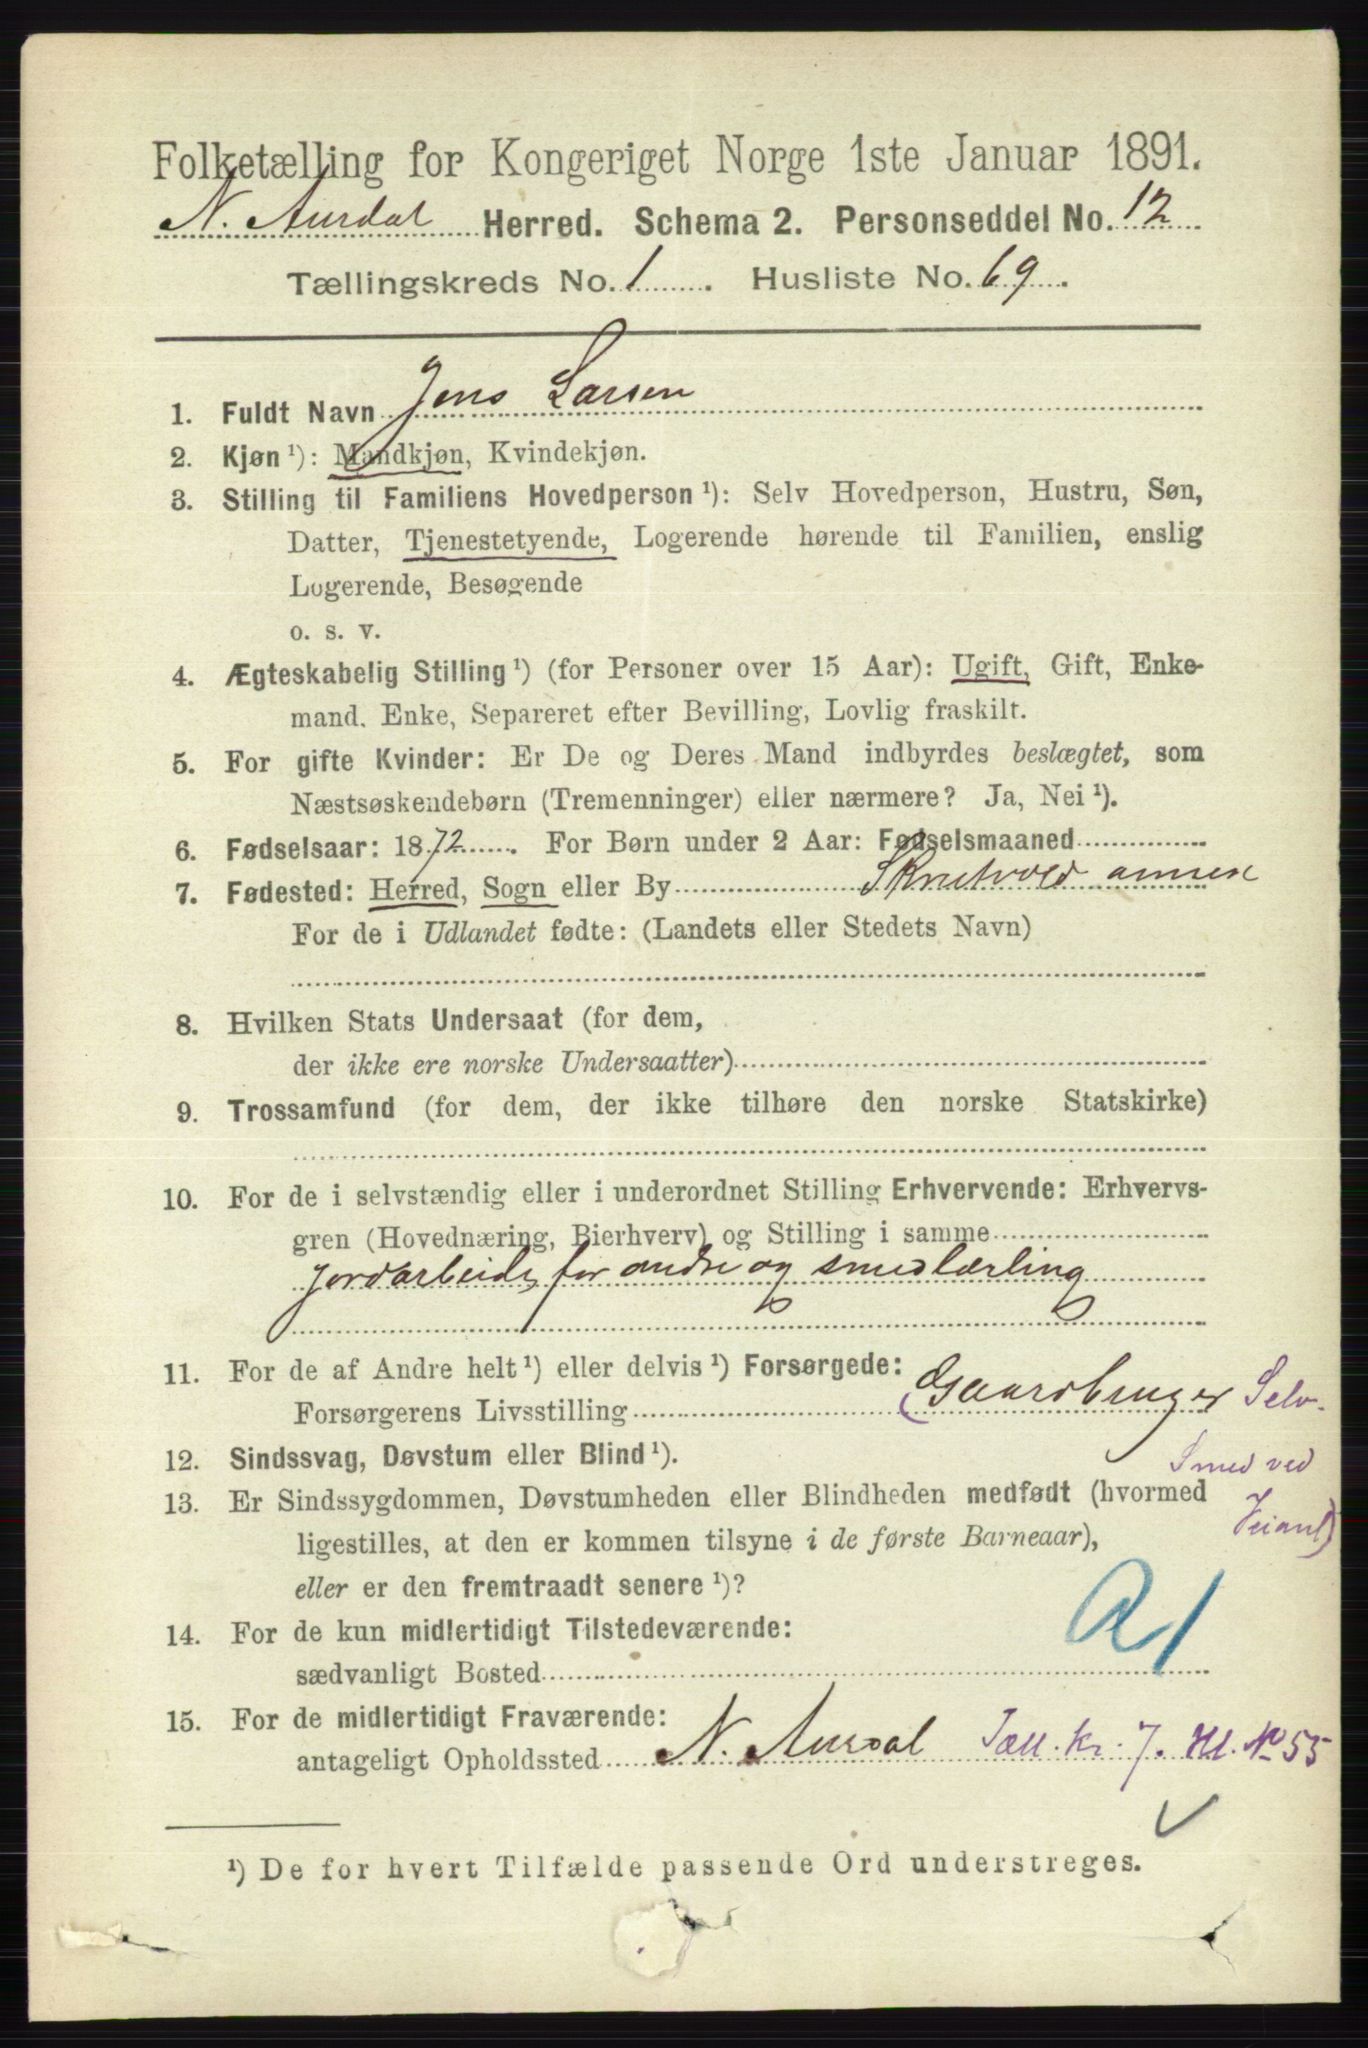 Folketælling for Kongeriget Norge 1ste Januar 1891.
N. Aurdal Herred. Schema 2. Personseddel No. 12
Tællingskreds No. 1. Husliste No. 69.
1. Fuldt Navn Jens Larsen
2. Kjøn ¹): Mandkjøn, Kvindekjøn.
3. Stilling til Familiens Hovedperson ¹): Selv Hovedperson, Hustru, Søn,
Datter, Tjenestetyende, Logerende hørende til Familien, enslig
Logerende, Besøgende
o. s. v.
4. Ægteskabelig Stilling ¹) (for Personer over 15 Aar): Ugift, Gift, Enke-
mand, Enke, Separeret efter Bevilling, Lovlig fraskilt.
5. For gifte Kvinder: Er De og Deres Mand indbyrdes beslægtet, som
Næstsøskendebørn (Tremenninger) eller nærmere? Ja, Nei ¹).
6. Fødselsaar: 1872. For Børn under 2 Aar: Fødselsmaaned
7. Fødested: Herred, Sogn eller By Skrutvold annex
For de i Udlandet fødte: (Landets eller Stedets Navn)
8. Hvilken Stats Undersaat (for dem,
der ikke ere norske Undersaatter)
9. Trossamfund (for dem, der ikke tilhøre den norske Statskirke)
10. For de i selvstændig eller i underordnet Stilling Erhvervende: Erhvervs-
gren (Hovednæring, Bierhverv) og Stilling i samme
Jordarbeide for andre og smedlærling
11. For de af Andre helt ¹) eller delvis ¹) Forsørgede:
Forsørgerens Livsstilling (Gaardbruger Selv-
12. Sindssvag, Døvstum eller Blind ¹). Smed ved
13. Er Sindssygdommen, Døvstumheden eller Blindheden medfødt (hvormed
ligestilles, at den er kommen tilsyne i de første Barneaar),
eller er den fremtraadt senere ¹)?
14. For de kun midlertidigt Tilstedeværende:
sædvanligt Bosted
15. For de midlertidigt Fraværende:
antageligt Opholdssted N. Aurdal Tæll. kr. 7. Hl. No 55
¹) De for hvert Tilfælde passende Ord understreges.